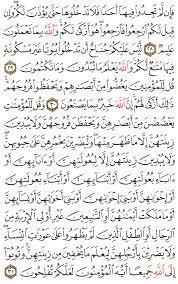 فَإِن لَّمْ تَجِدُوا۟ فِيهَآ أَحَدًا فَلَا تَدْخُلُوهَا حَتَّىٰ يُؤْذَنَ لَكُمْ وَإِن
قِيلَ لَكُمُ ٱرْجِعُوا۟ فَٱرْجِعُوا۟ هُوَ أَزْكَىٰ لَكُمْ وَٱللَّهُ بِمَا تَعْمَلُونَ
عَلِيمٌ ٢٨ لَّيْسَ عَلَيْكُمْ جُنَاحٌ أَن تَدْخُلُوا۟ بُيُوتًا غَيْرَ مَسْكُونَةٍ
فِيهَا مَتَٰعٌ لَّكُمْ وَٱللَّهُ يَعْلَمُ مَا تُبْدُونَ وَمَا تَكْتُمُونَ
٢٩ قُل لِّلْمُؤْمِنِينَ يَغُضُّوا۟ مِنْ أَبْصَٰرِهِمْ وَيَحْفَظُوا۟ فُرُوجَهُمْ
ذَٰلِكَ أَزْكَىٰ لَهُمْ إِنَّ ٱللَّهَ خَبِيرٌۢ بِمَا يَصْنَعُونَ ٣٠ وَقُل لِّلْمُؤْمِنَٰتِ
يَغْضُضْنَ مِنْ أَبْصَٰرِهِنَّ وَيَحْفَظْنَ فُرُوجَهُنَّ وَلَا يُبْدِينَ
زِينَتَهُنَّ إِلَّا مَا ظَهَرَ مِنْهَا وَلْيَضْرِبْنَ بِخُمُرِهِنَّ عَلَىٰ جُيُوبِهِنَّ
وَلَا يُبْدِينَ زِينَتَهُنَّ إِلَّا لِبُعُولَتِهِنَّ أَوْ ءَابَآئِهِنَّ أَوْ
ءَابَآءِ بُعُولَتِهِنَّ أَوْ أَبْنَآئِهِنَّ أَوْ أَبْنَآءِ بُعُولَتِهِنَّ
أَوْ إِخْوَٰنِهِنَّ أَوْ بَنِىٓ إِخْوَٰنِهِنَّ أَوْ بَنِىٓ أَخَوَٰتِهِنَّ أَوْ نِسَآئِهِنَّ
أَوْ مَا مَلَكَتْ أَيْمَٰنُهُنَّ أَوِ ٱلتَّٰبِعِينَ غَيْرِ أُو۟لِى ٱلْإِرْبَةِ مِنَ
ٱلرِّجَالِ أَوِ ٱلطِّفْلِ ٱلَّذِينَ لَمْ يَظْهَرُوا۟ عَلَىٰ عَوْرَٰتِ ٱلنِّسَآءِ
وَلَا يَضْرِبْنَ بِأَرْجُلِهِنَّ لِيُعْلَمَ مَا يُخْفِينَ مِن زِينَتِهِنَّ وَتُوبُوٓا۟
إِلَى ٱللَّهِ جَمِيعًا أَيُّهَ ٱلْمُؤْمِنُونَ لَعَلَّكُمْ تُفْلِحُونَ ٣١